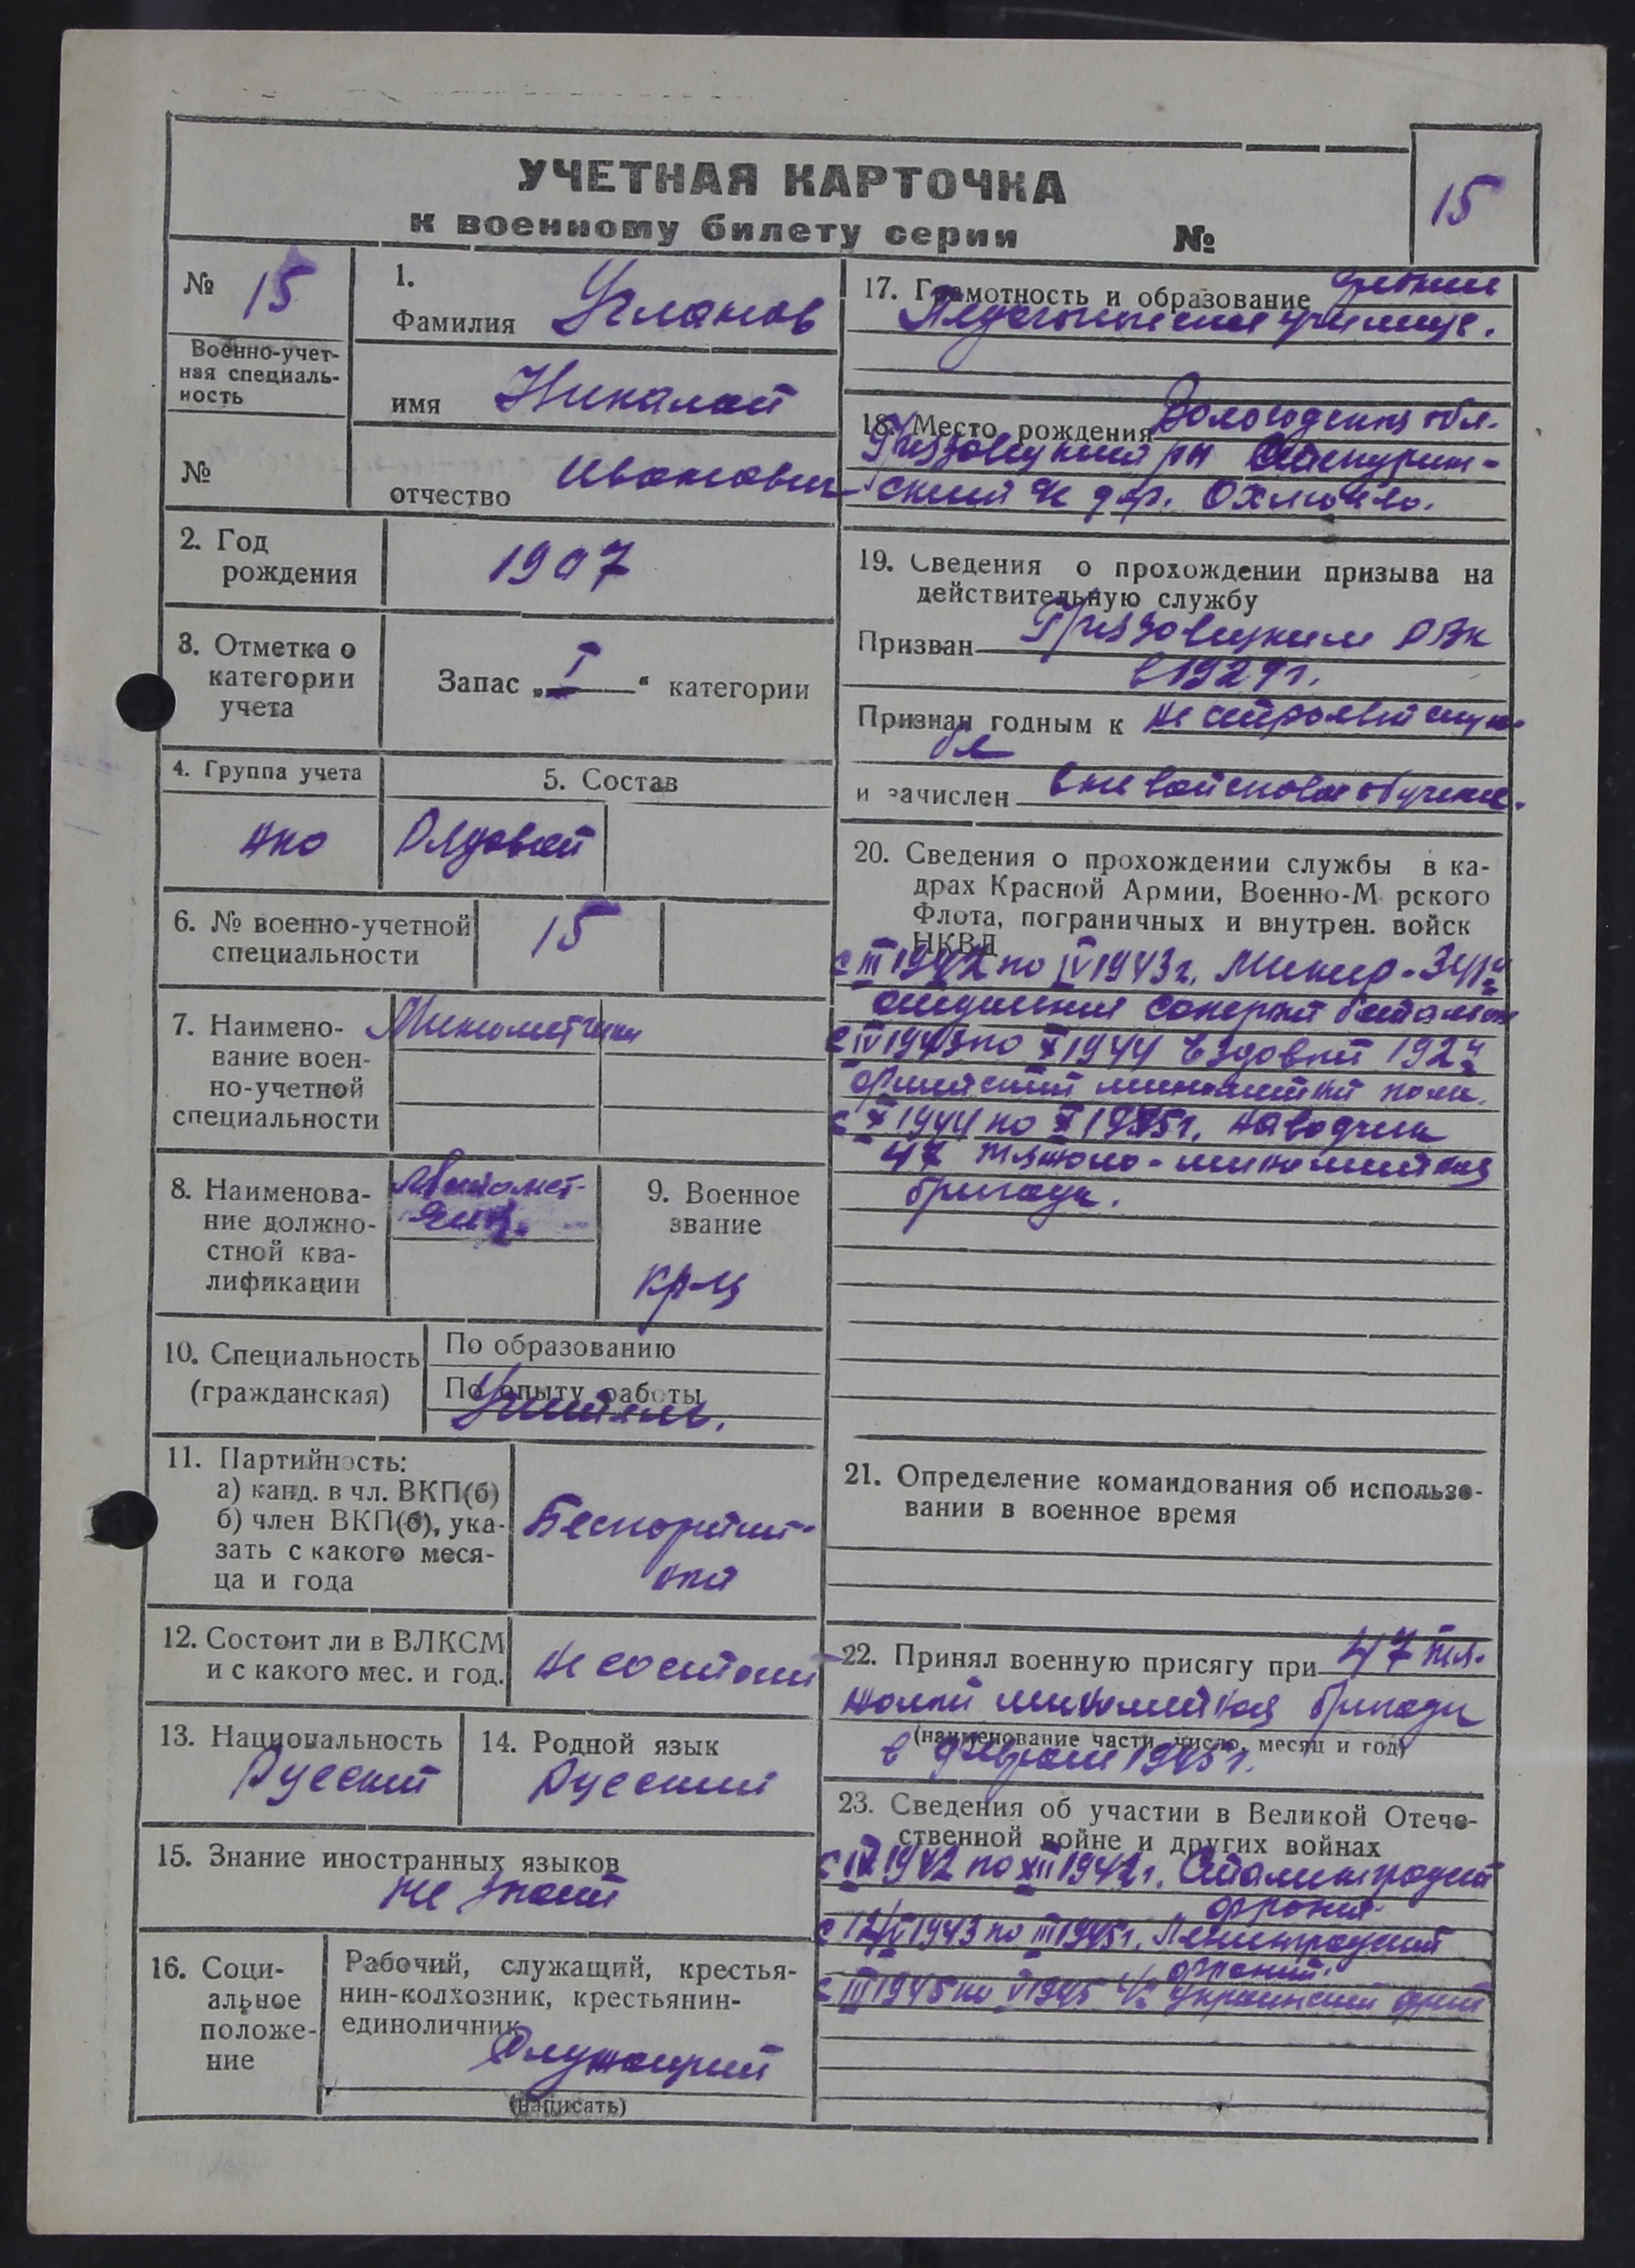 УЧЕТНАЯ КАРТОЧКА
15
к военному билету серии №
№ 15
Военно-учет-
ная специаль-
ность
№
1.
Фамилия Угланов
имя Николай
отчество Иванович
2. Год
рождения
1907
3. Отметка о
категории
учета
Запас „I“ категории
4. Группа учета
5. Состав
Рядовой
6. № военно-учетной
специальности
15
7. Наимено-
вание воен-
но-учетной
специальности
Минометчики
8. Наименова-
ние должно-
стной ква-
лификации
9. Военное
звание
кр-ц
10. Специальность
(гражданская)
По образованию
По опыту работы
Учитель.
11. Партийность:
а) канд. в чл. ВКП(б)
б) член ВКП(б), ука-
зать с какого меся-
ца и года
Беспартий-
ный
12. Состоит ли в ВЛКСМ
и с какого мес. и год.
не состоит
13. Национальность
Русский
14. Родной язык
Русский
15. Знание иностранных языков
не знает
16. Соци-
альное
положе-
ние
Рабочий, служащий, крестья-
нин-колхозник, крестьянин-
единоличник
Служащий
(написать)
17. Грамотность и образование среднее
Педагогическое училище.
18. Место рождения Вологодская обл.
Грязовецкий рн
ский дер.
19. Сведения о прохождении призыва на
действительную службу
Призван Грязовецким РВК
в 1929 г.
Признан годным к не строевой служ-
бе
и зачислен вне войсковое обучение.
20. Сведения о прохождении службы в ка-
драх Красной Армии, Военно-М рского
Флота, пограничных и внутрен. войск
НКВД
с III 1942 по IV 1943 г. Минер -
саперный батальон
с IV 1943 по X 1944 ездовой 192й
армейский минометный полк.
с X 1944 по X 1945 г. наводчик
47 тяжело-минометная
бригада.
21. Определение командования об использо-
вании в военное время
22. Принял военную присягу при 47 тя-
желой минометная бригады
(наименование части, число, месяц и год)
в феврале 1945 г.
23. Сведения об участии в Великой Отече-
ственной войне и других войнах
с IX 1942 по XII 1942 г. Сталинградский
фронт.
1943 по III 1945 г. Ленинградский
фронт.
с III 1945 по V 1945 Украинский фронт